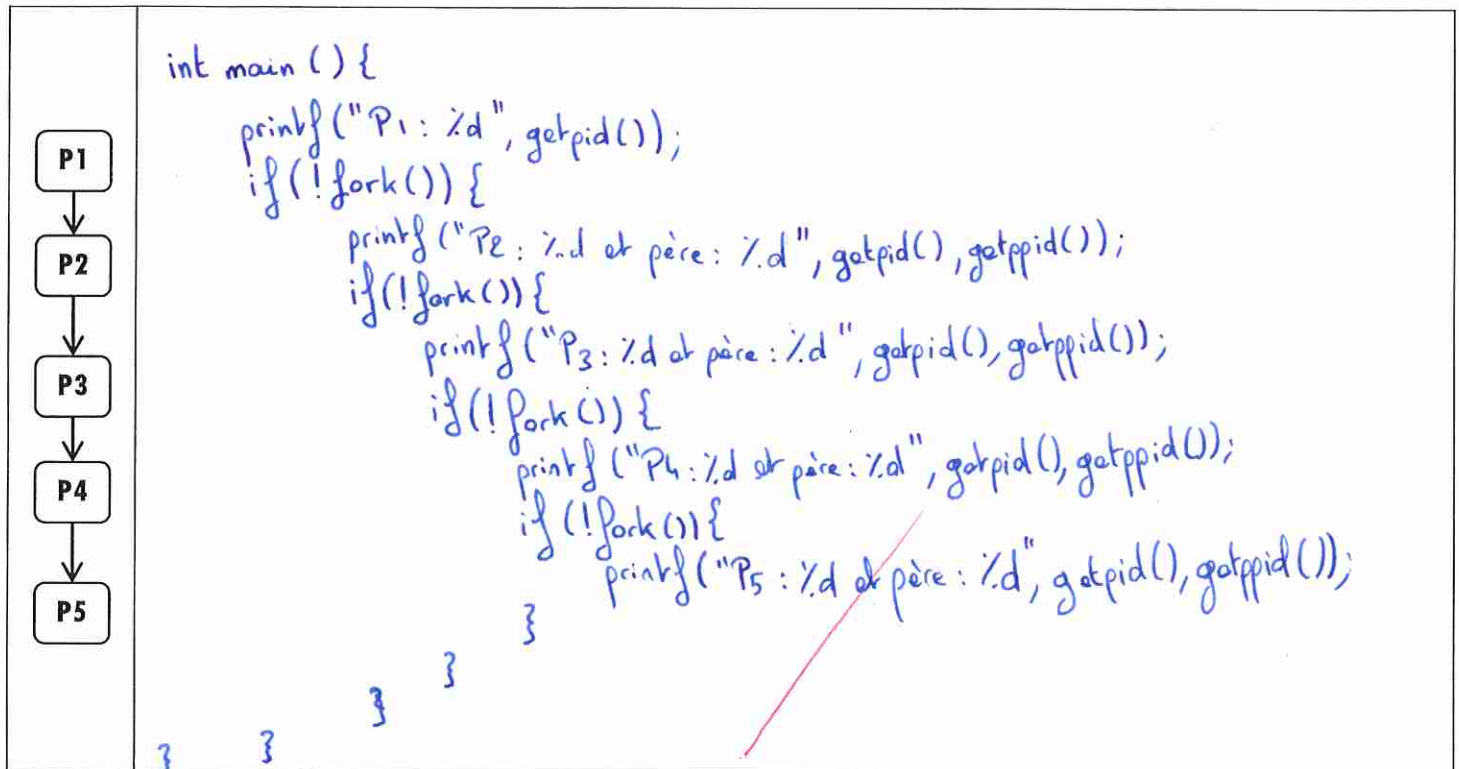 P1
P2
P3
P4
P5
int main () {
printf ("P1 : %d", getpid());
if (! fork ()) {
printf ("P2 : %d et père : %d", getpid(), getppid());
if (! fork ()) {
printf ("P3 : %d et père : %d", getpid(), getppid());
if (! fork ()) {
printf ("P4 : %d et père : %d", getpid(), getppid());
if (! fork ()) {
printf ("P5 : %d et père : %d", getpid(), getppid());
}
}
}
} }